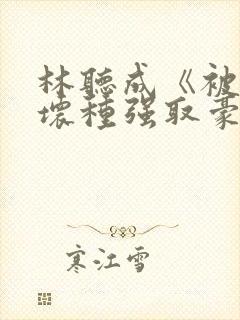 林聽成《被
壞種强取豪
寒江雪